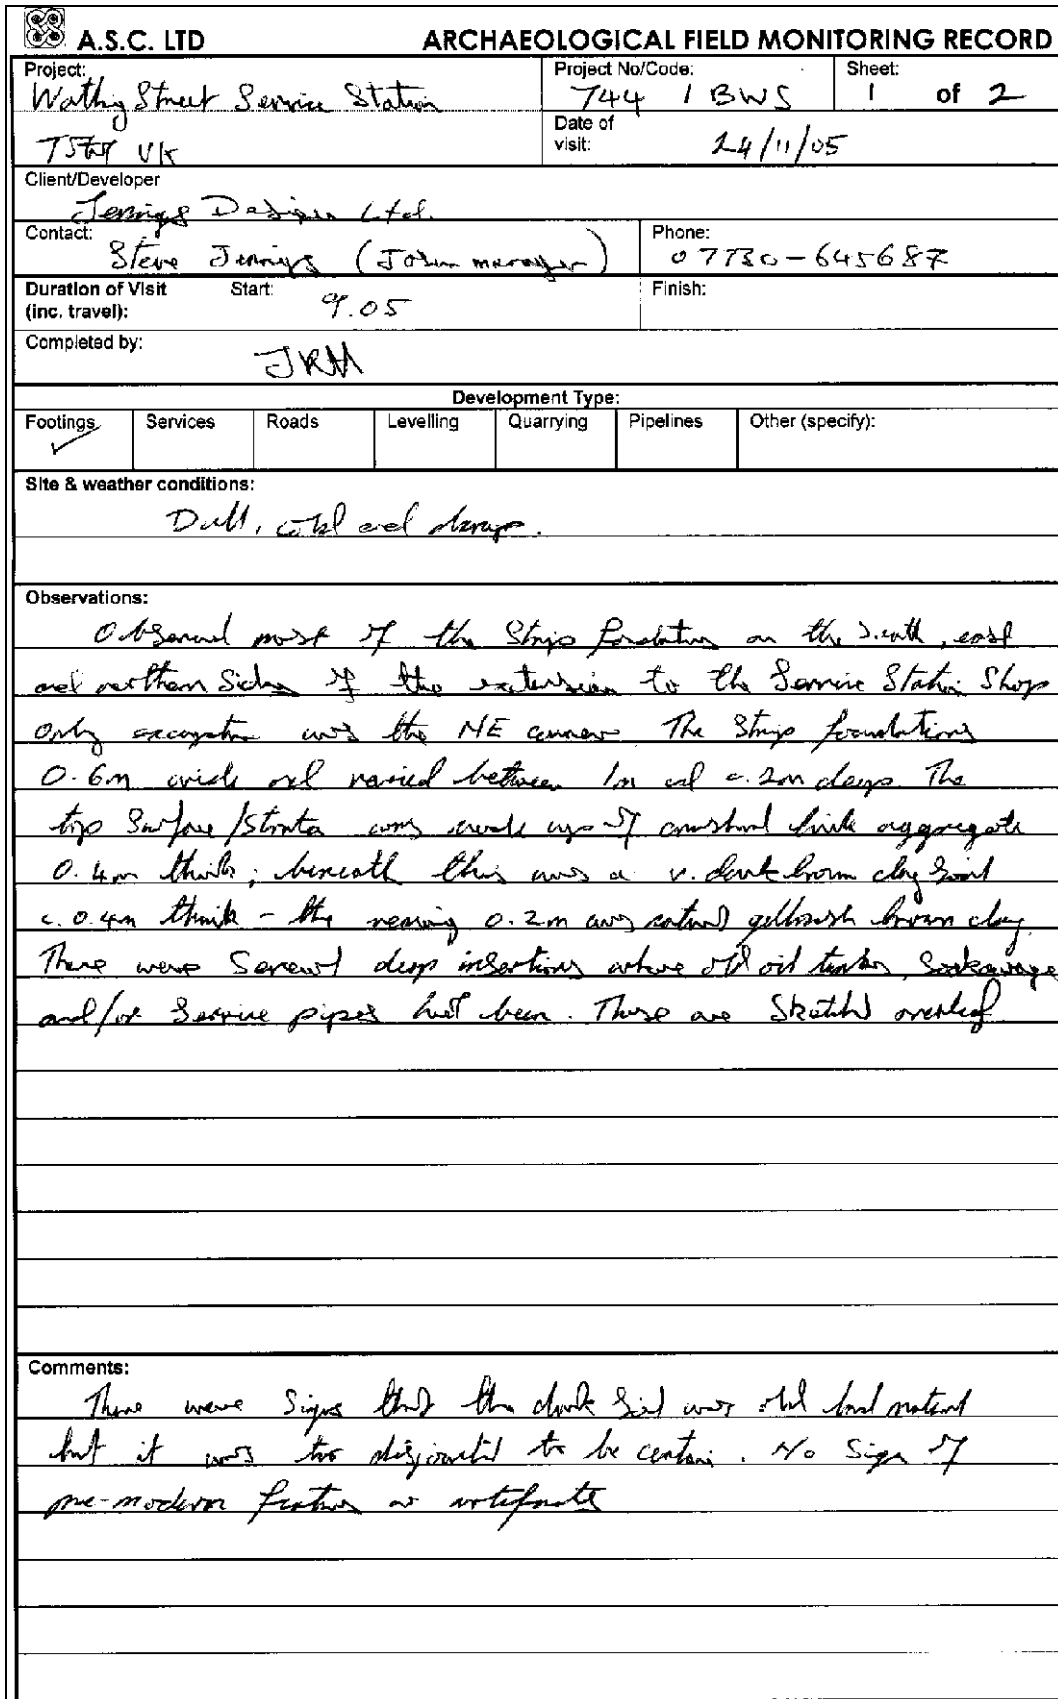 A.S.C. LTD ARCHAEOLOGICAL FIELD MONITORING RECORD
Project: Project No/Code: Sheet:
Watling Street Service Station 744 / BWS 1 of 2
Date of visit: 24/11/05
UK
Client/Developer
Jennings Design Ltd.
Contact: Phone:
Steve Jennings ( manager) 07730-645687
Duration of Visit (inc. travel): Start: 9.05 Finish:
Completed by: JRH
Development Type:
Footings ✓ Services Roads Levelling Quarrying Pipelines Other (specify):
Site & weather conditions:
Dull, cold and damp.
Observations:
Observed most of the Strip foundations on the South, east
and northern Sides of the extension to the Service Station Shop
Only exception was the NE corner The Strip foundations
0.6m wide and varied between 1m and c. 2m deep. The
top Surface/Strata was made up of crushed brick aggregate
0.4m thick; beneath this was a v. dark brown clay Soil
c. 0.4m thick - the remaining 0.2m was natural yellowish brown clay.
There were Several deep insertions where old oil tanks, Soakaways
and/or Service pipes had been. These are Sketched overleaf
Comments:
There were Signs that the dark Soil was old land
but it was too to be certain. No Sign of
pre-modern features or artefacts